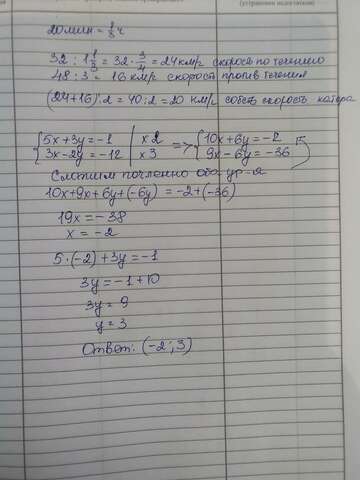 20 мин = 1/3 ч
32 : 1 1/3 = 32 · 3/4 = 24 км/ч скорость по течению
48 : 3 = 16 км/ч скорость против течения
(24+16) : 2 = 40 : 2 = 20 км/ч собств скорость катера
{5x+3y=-1 | x 2 => {10x+6y=-2
{3x-2y=-12 | x 3 {9x-6y=-36
Сложим почленно оба ур-я
10x+9x+6y+(-6y) = -2+(-36)
19x = -38
x = -2
5·(-2)+3y=-1
3y=-1+10
3y=9
y=3
Ответ: (-2; 3)